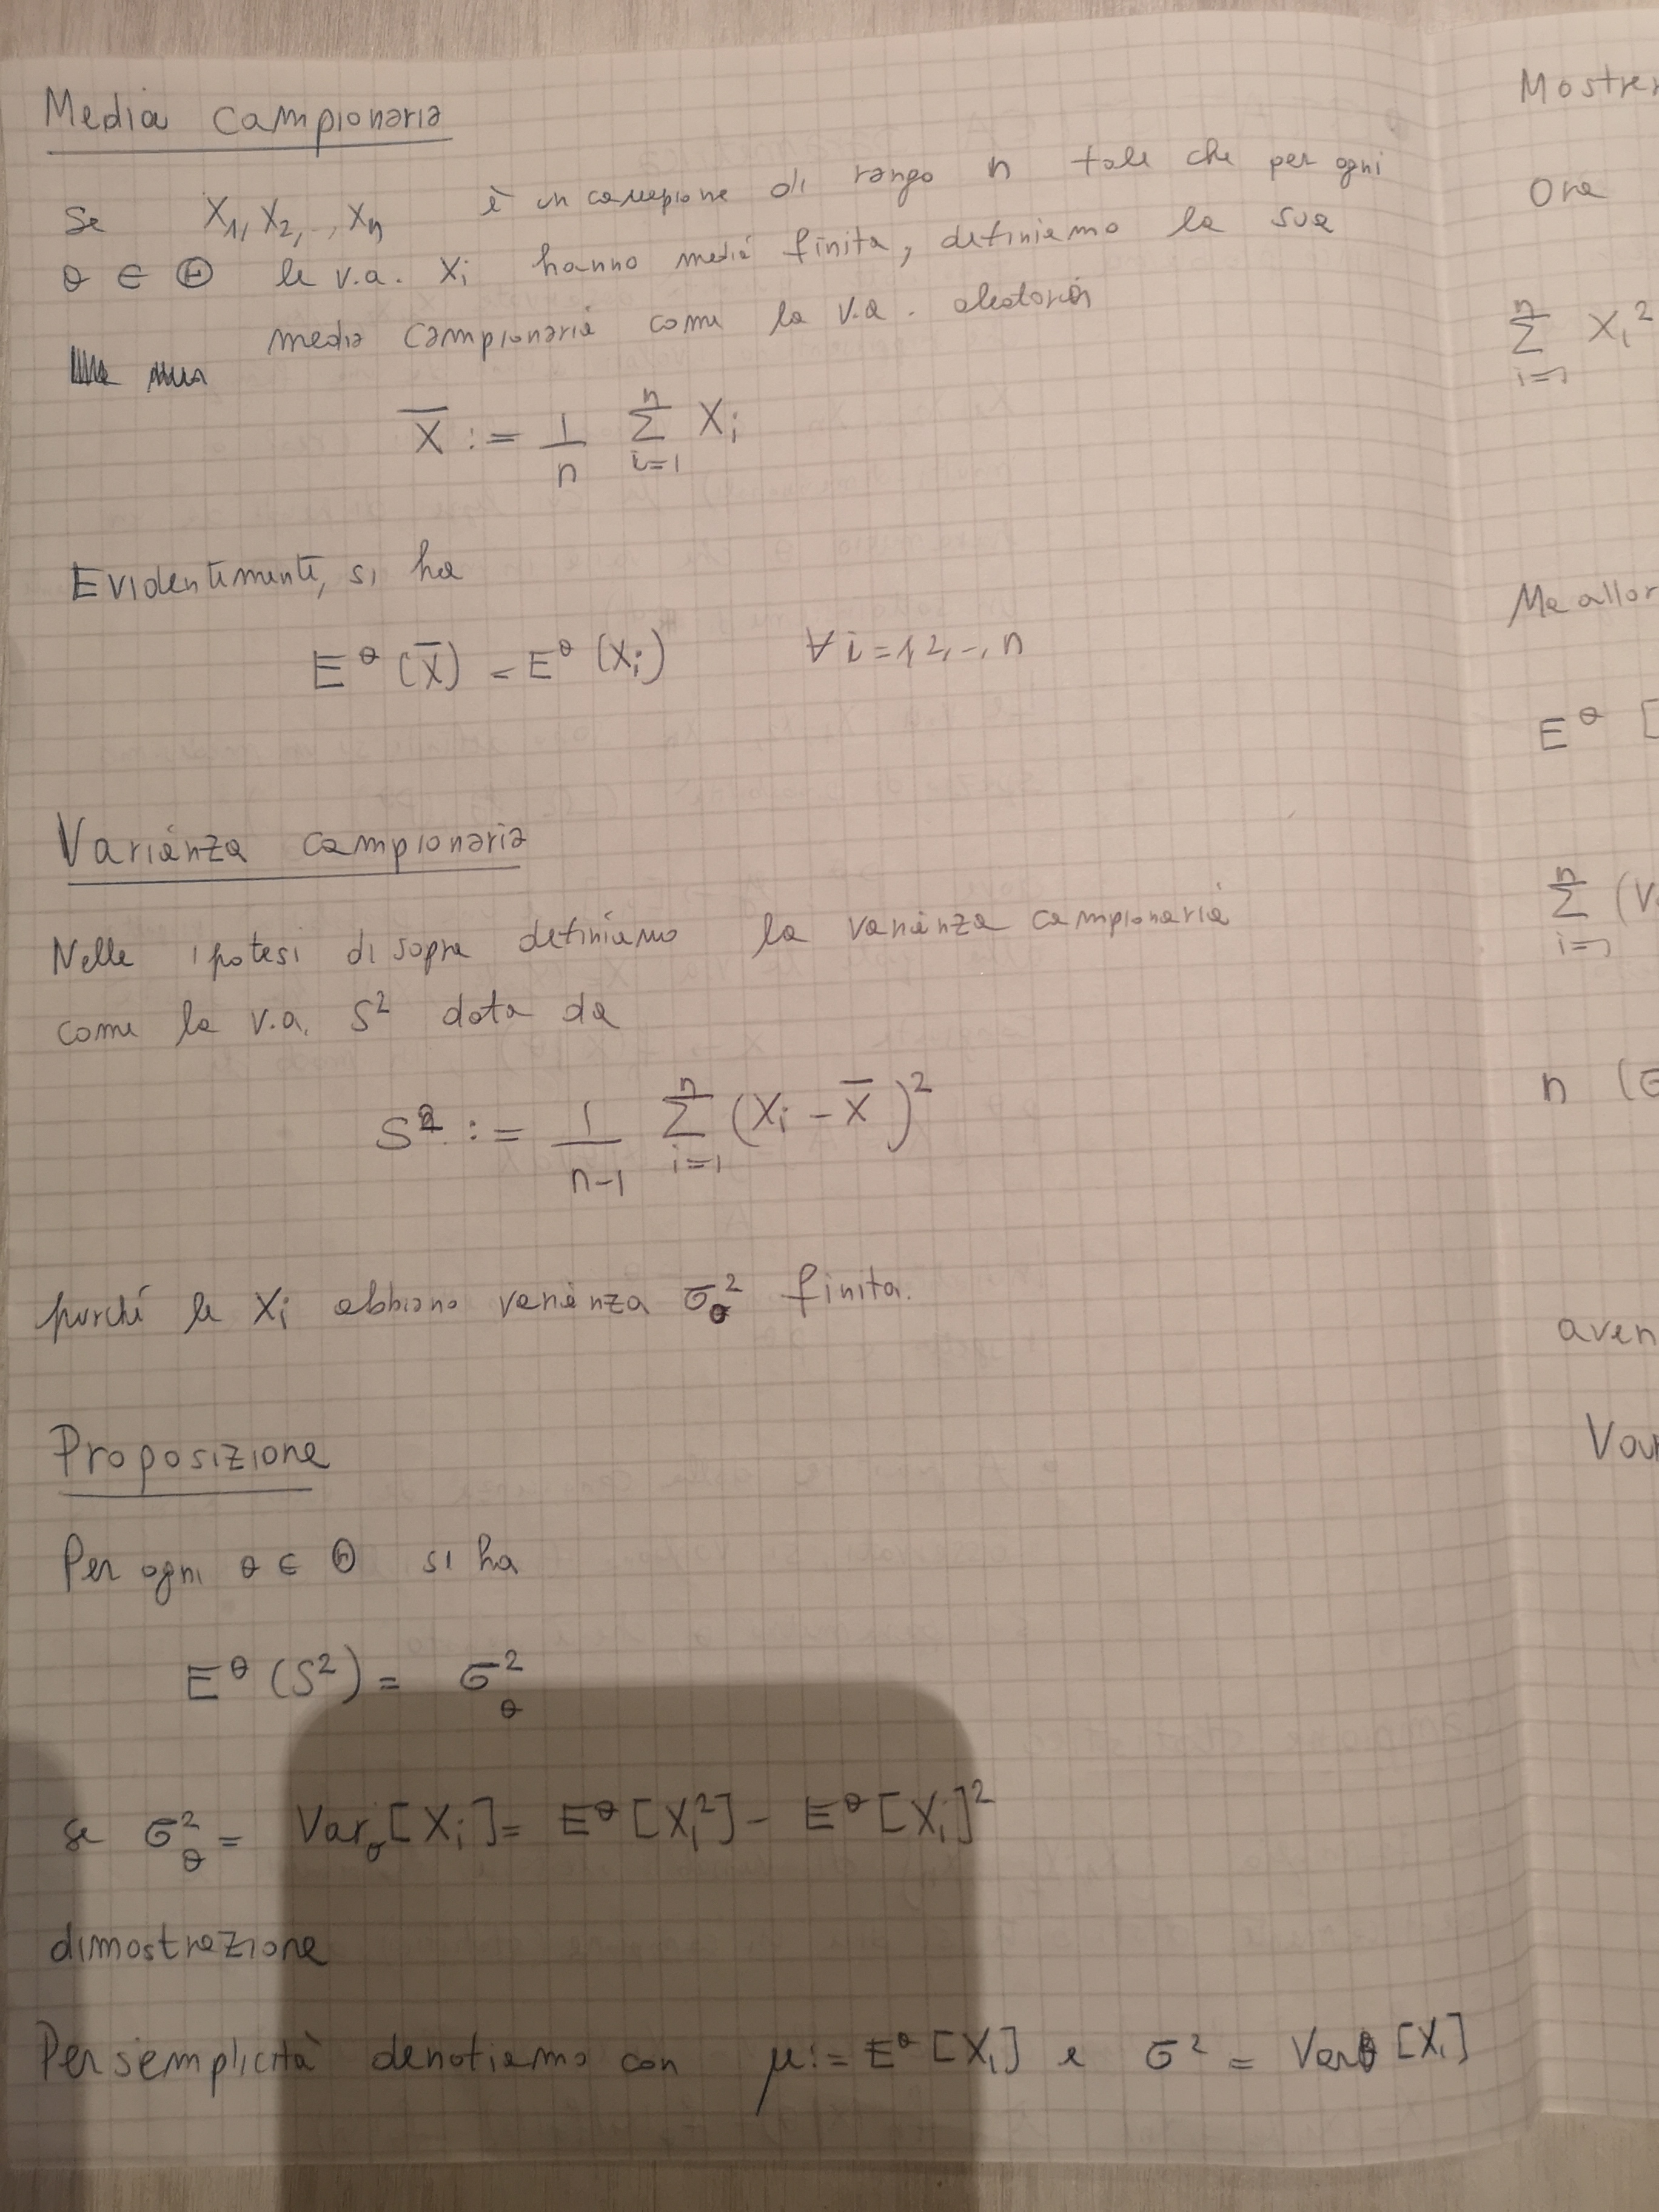 Media campionaria
Se X₁, X₂, .., Xₙ è un campione di rango n tale che per ogni
θ ∈ Θ le v.a. Xᵢ hanno media finita, definiamo la sua
media campionaria come la v.a. aleatoria
X̄ := 1/n ∑ᵢ₌₁ⁿ Xᵢ
Evidentemente, si ha
E^θ (X̄) = E^θ (Xᵢ) ∀ i = 1, 2, .., n
Varianza campionaria
Nelle ipotesi di sopra definiamo la varianza campionaria
come la v.a. S² data da
S² := 1/(n-1) ∑ᵢ₌₁ⁿ (Xᵢ - X̄)²
purché le Xᵢ abbiano varianza σ_θ² finita.
Proposizione
Per ogni θ ∈ Θ si ha
E^θ (S²) = σ_θ²
se σ_θ² = Var_θ [Xᵢ] = E^θ [Xᵢ²] - E^θ [Xᵢ]²
dimostrazione
Per semplicità denotiamo con μ := E^θ [Xᵢ] e σ² = Var_θ [Xᵢ]
Ora
∑ᵢ₌₁ⁿ Xᵢ²
E^θ [
∑ᵢ₌₁ⁿ (
n (